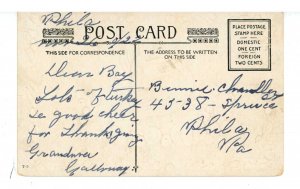 Phila
POST CARD
THIS SIDE FOR CORRESPONDENCE
THE ADDRESS TO BE WRITTEN
ON THIS SIDE
PLACE POSTAGE
STAMP HERE
DOMESTIC
ONE CENT
FOREIGN
TWO CENTS
Dear Boy
Lots of turkey
& good cheer
for Thanksgiving
Grandma
Galloway
Bennie Chandler
4538 - Spruce
Phila
Pa